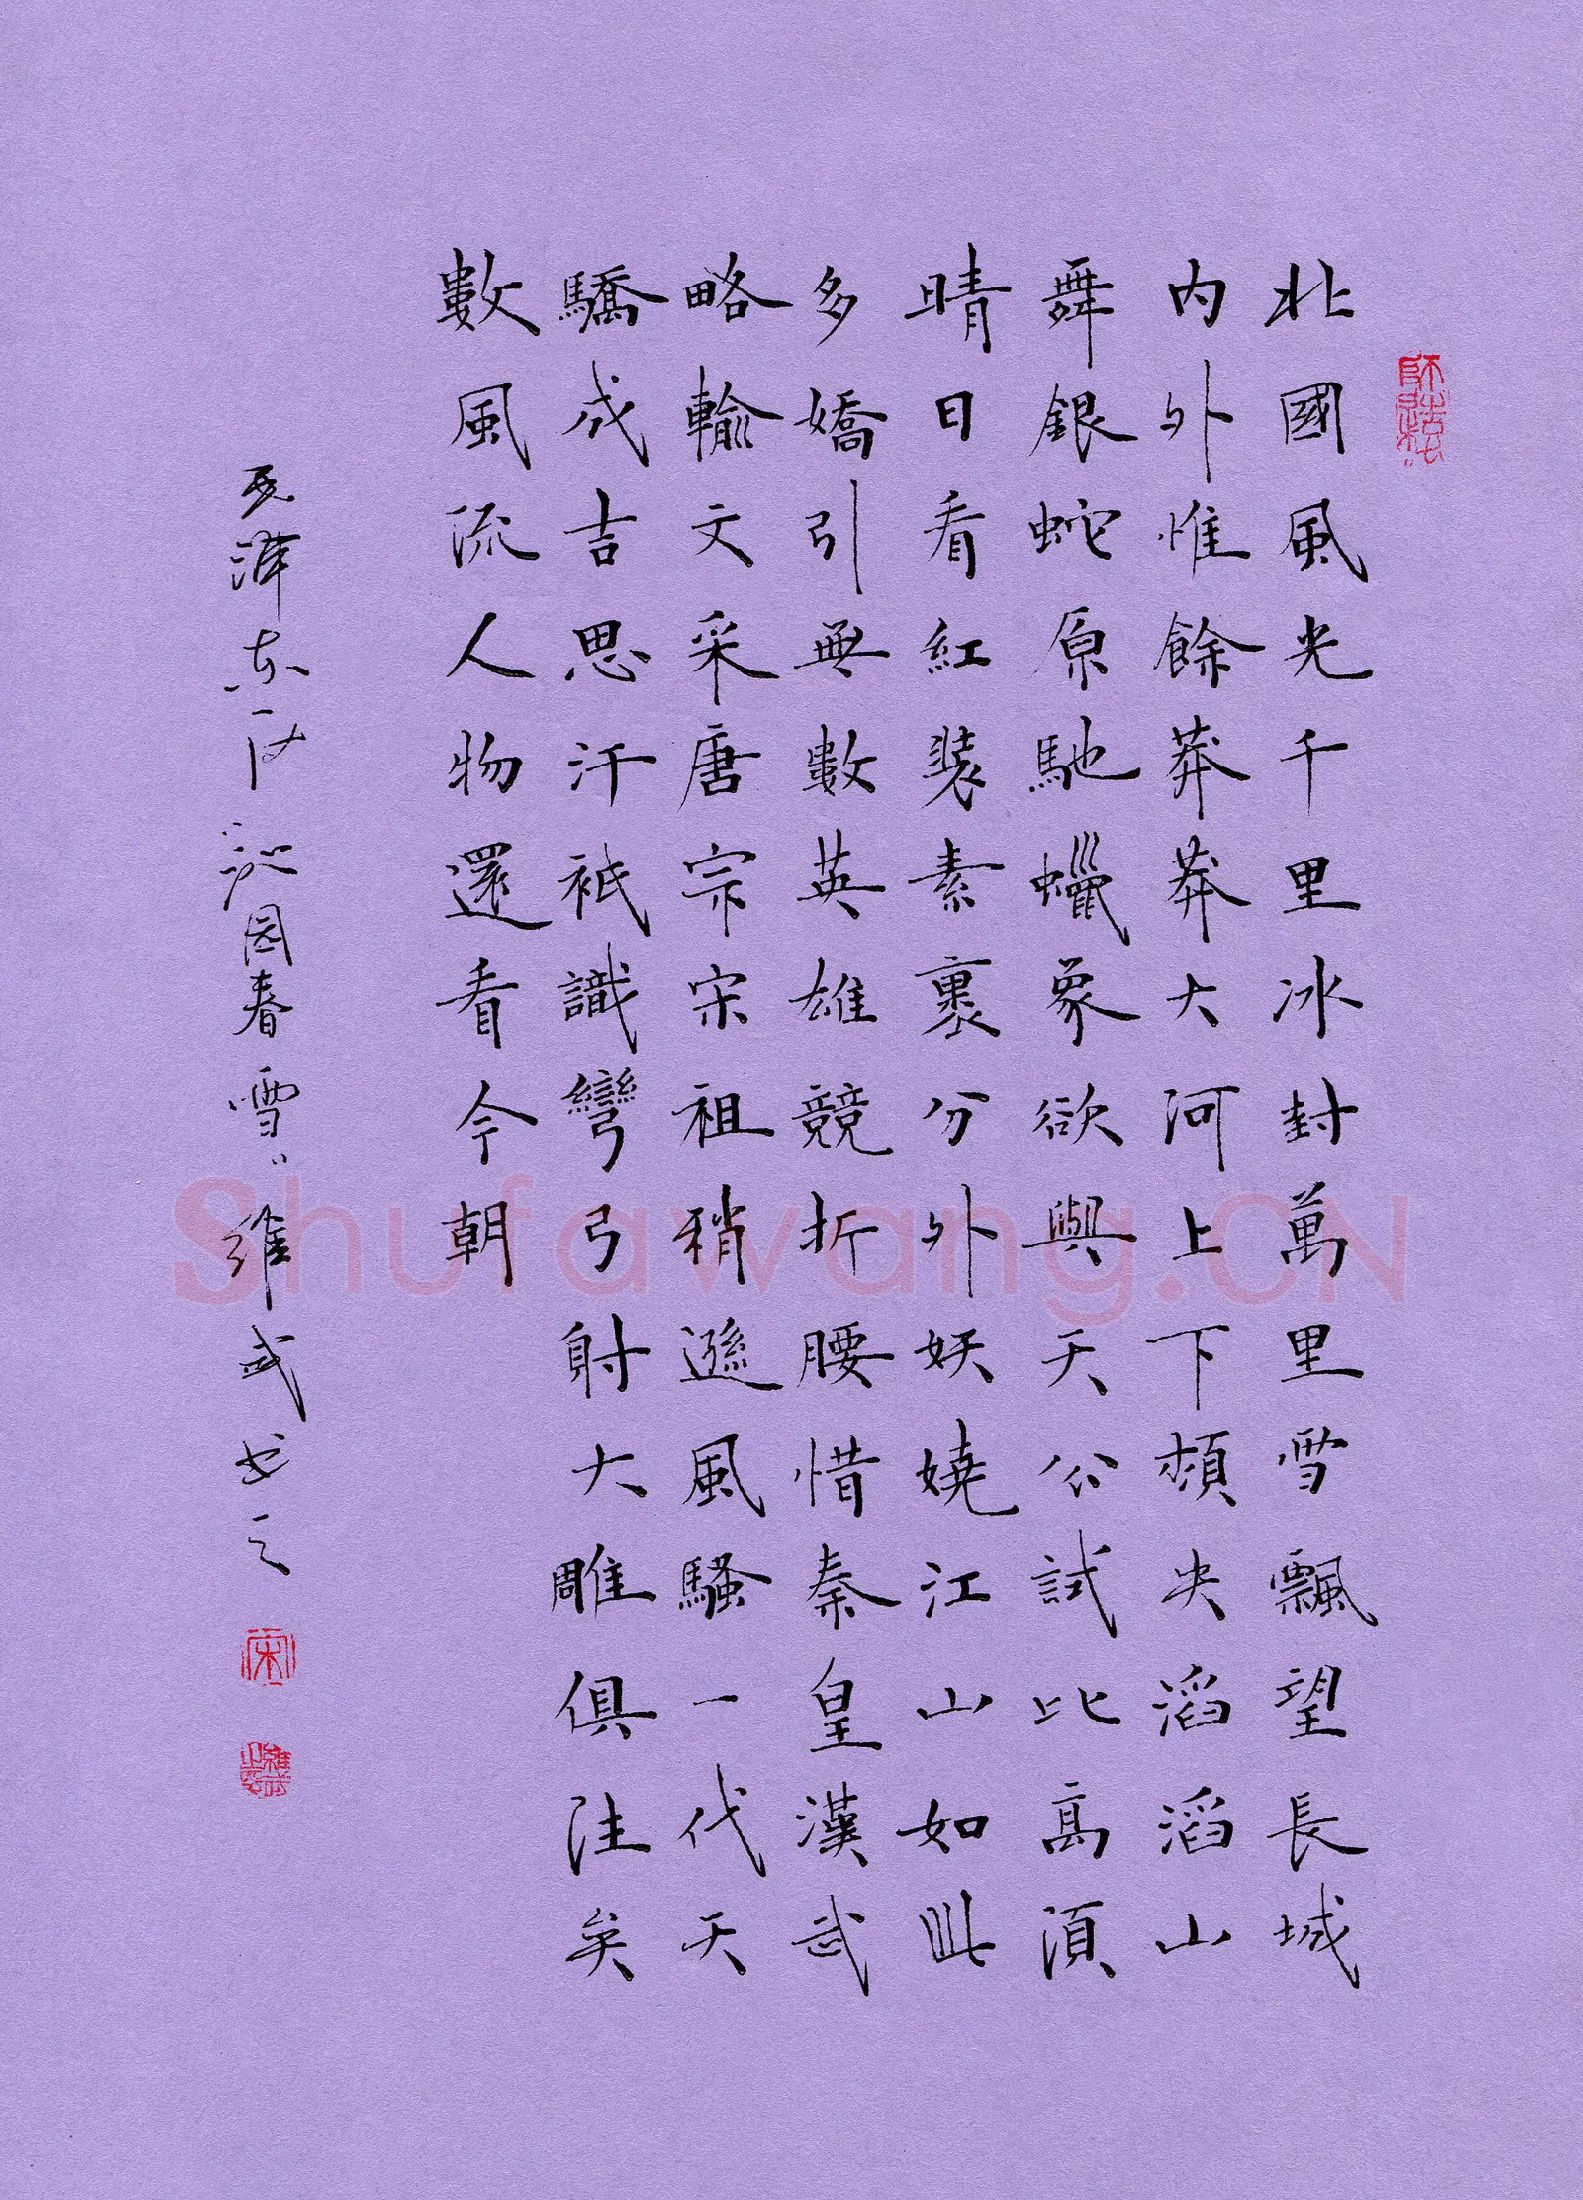 北國風光千里冰封萬里雪飄望長城
内外惟餘莽莽大河上下頓失滔滔山
舞銀蛇原馳蠟象欲與天公試比高須
晴日看紅裝素裹分外妖嬈江山如此
多嬌引無數英雄競折腰惜秦皇漢武
略輸文采唐宗宋祖稍遜風騷一代天
驕成吉思汗祇識彎弓射大雕俱往矣
數風流人物還看今朝
毛澤东詞沁园春雪維武书之
宋
Shufawang.CN